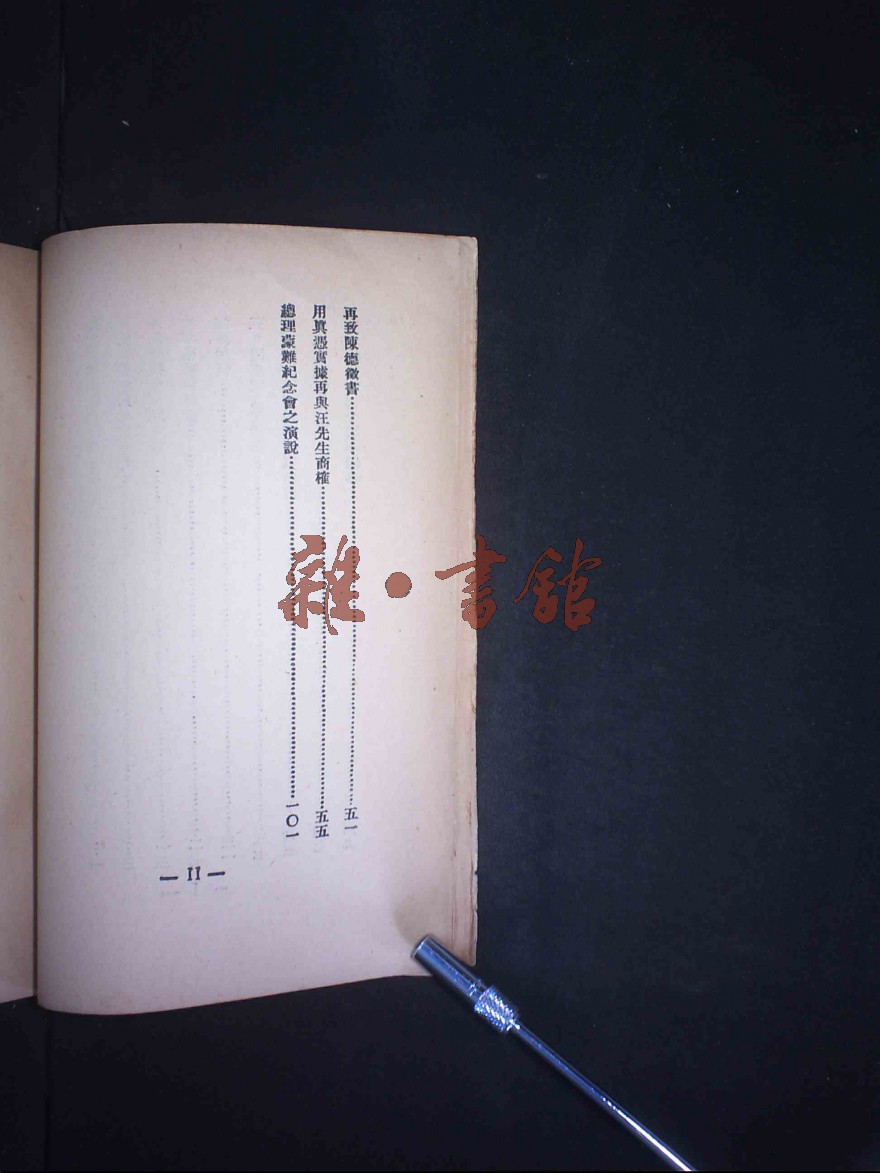 再致陳德徵書⋯⋯五一
用眞憑實據再與汪先生商榷⋯⋯五五
總理蒙難紀念會之演說⋯⋯一〇一
— II —
雜·書館